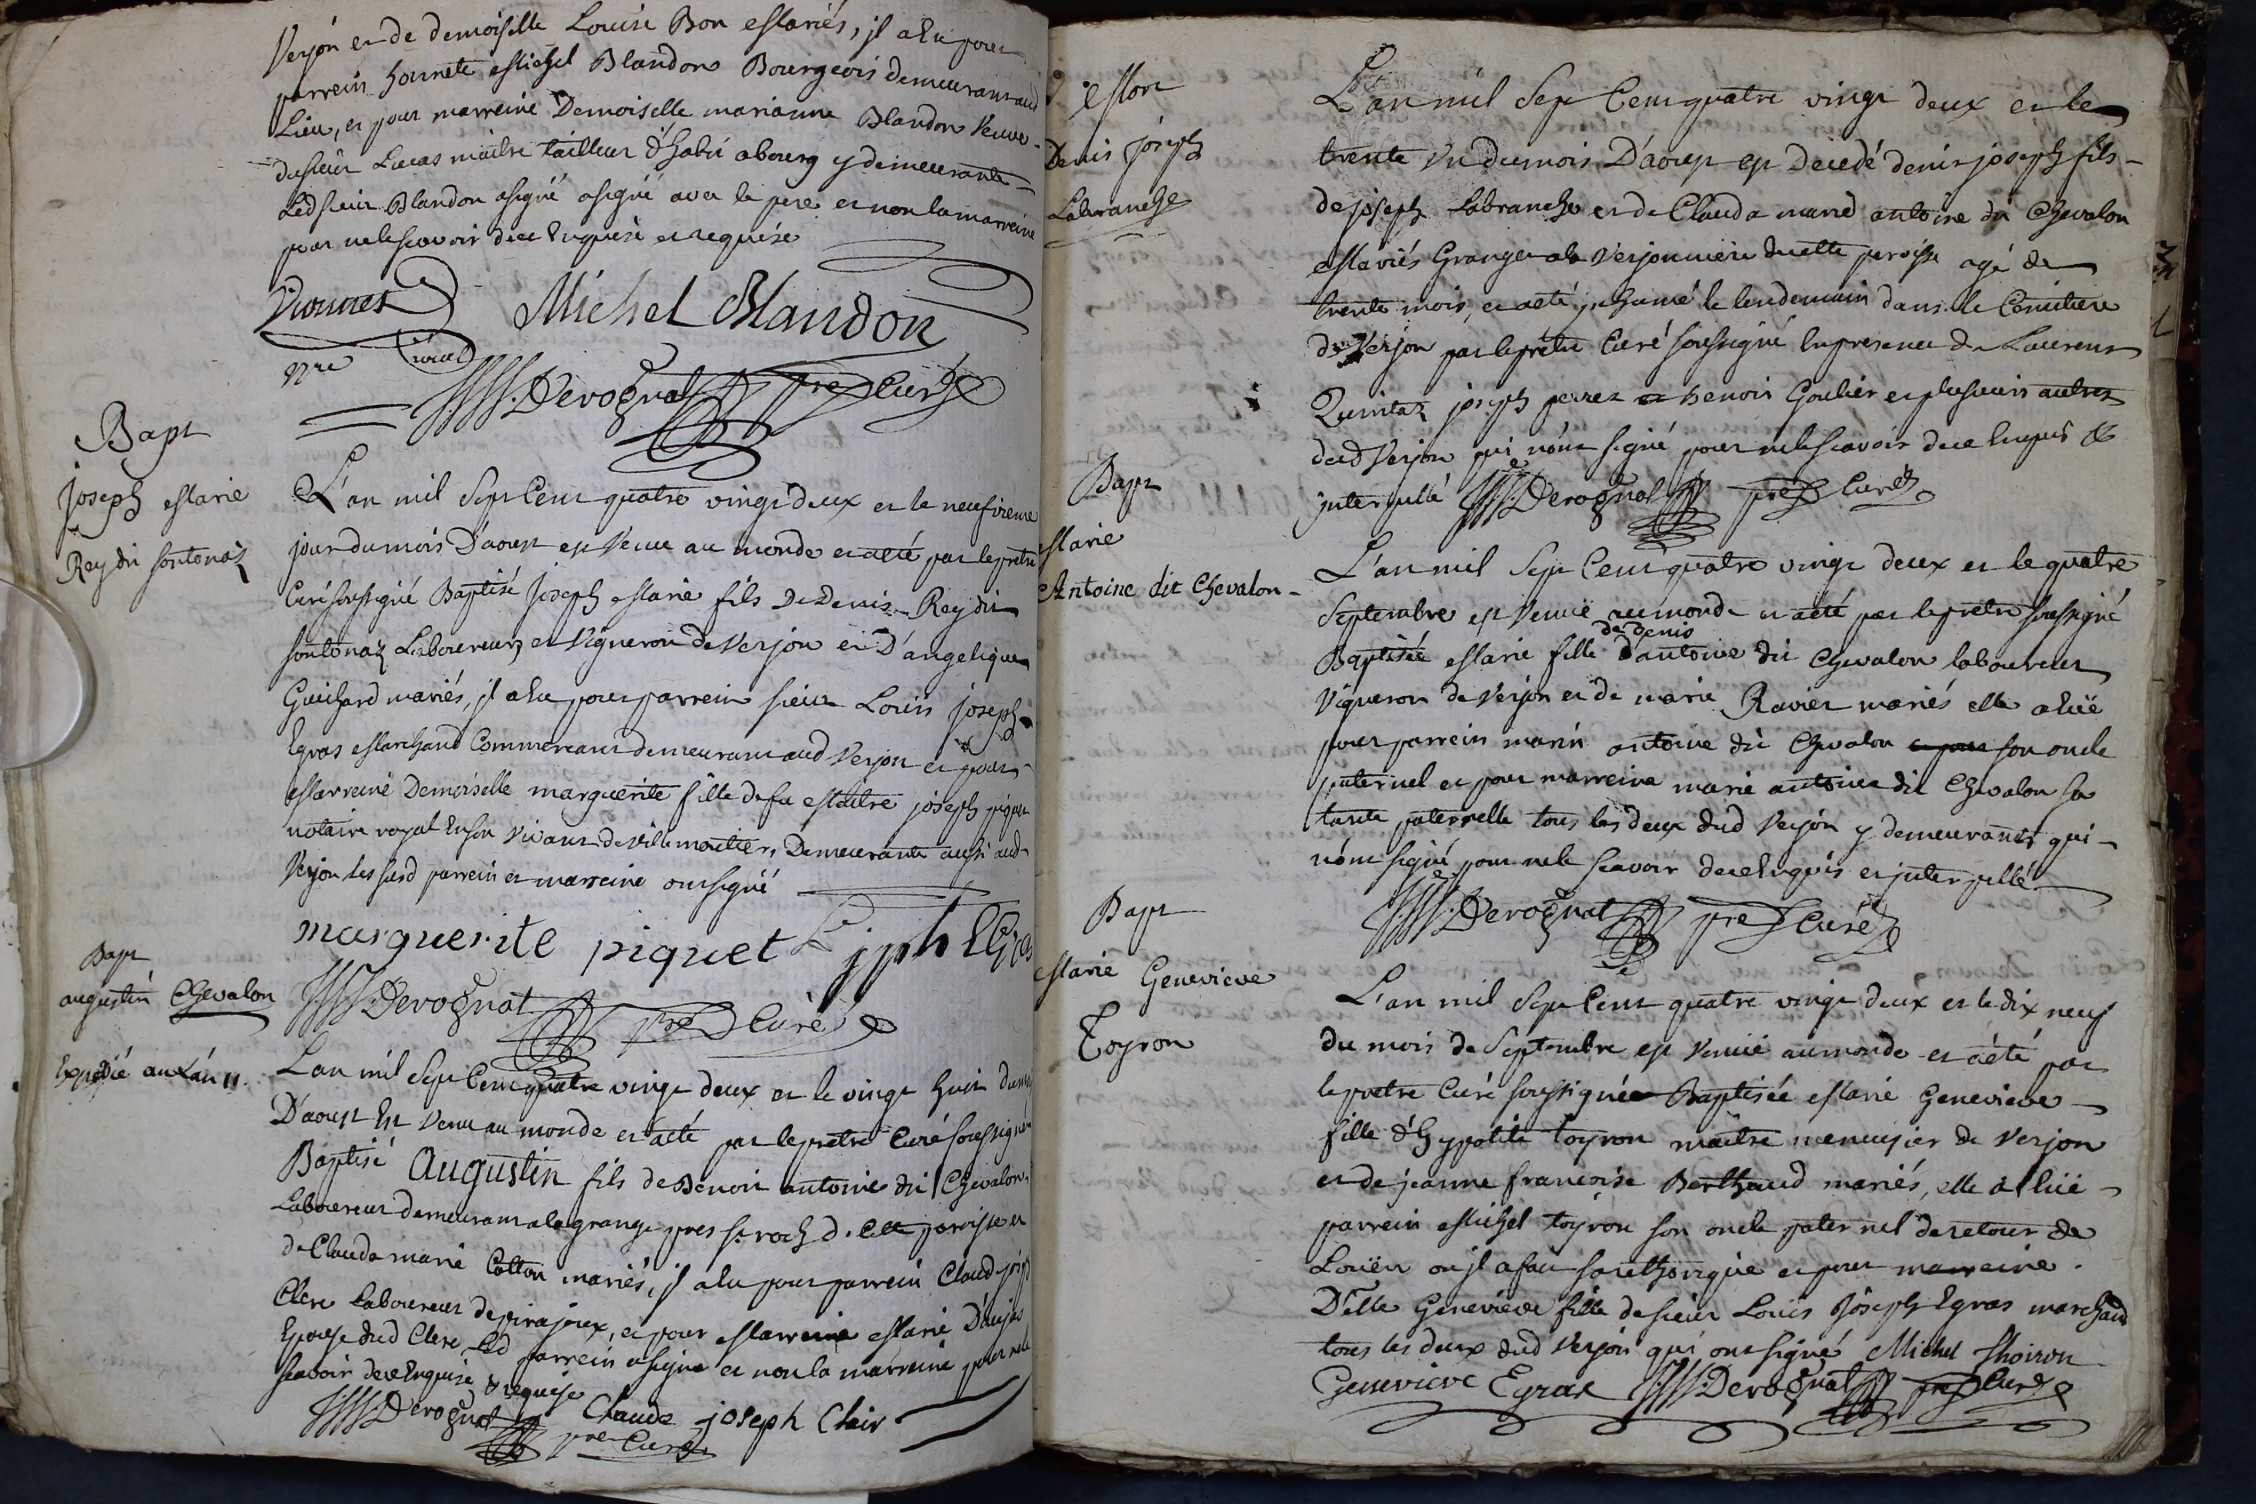 Verjon et de demoiselle Louise Bon mariés, il a hu pour
parrein honnete Michel Blandon Bourgeois demeurant aud
Lieu, et pour marreine Demoiselle marianne Blandon veuve
du sieur Lucas maitre tailleur d'habit a bourg y demeurante
Led sieur Blandon a signé a signé avec le pere et non la marreine
pour ne le scavoir de ce Enquise et requise
Michel Blandon
Derognat pre Curé
Bapt
joseph Marie
Rey dit fontenaz
L'an mil Sept Cent quatre vingt deux et le neufvieme
jour du mois D'aoust est Venu au monde et a eté par le pretre
Curé soussigné Baptisé joseph Marie fils De Denis Rey dit
fontenaz Laboureur et Vigneron de Verjon et D'angelique
Guichard mariés, il a hu pour parrein sieur Louis joseph
Egras Marchand Commercant demeurant aud Verjon et pour
Marreine Demoiselle marguerite fille de fu Maitre joseph piquet
notaire royal En son Vivant de villemoutier, Demeurante aussi aud
Verjon les susd parrein et marreine ont signé
marguerite piquet L jph Egras
Derognat pre Curé
Bapt
augustin Chevalon
Expedié
L'an mil Sept Cent quatre vingt deux et le vingt huit du mois
D'aoust Est Venu au monde et a eté par le pretre Curé soussigné
Baptisé Augustin fils de Benoit antoine dit Chevalon
Laboureur demeurant a la grange pres st roch de Cette parroisse et
de Claude marie Cotton mariés, il a hu pour parrein Claude joseph
Clere Laboureur de pirajoux, et pour Marreine Marie Daujas
Epouse dud Clere Led parrein a signé et non la marreine pour ne le
scavoir de ce Enquise & requise
Derognat pre Curé Claude joseph Clair
Mort
Denis joseph
Labranche
L'an mil Sept Cent quatre vingt deux et le
trente un du mois D'aoust est Decedé denis joseph fils
de joseph Labranche et de Clauda marie antoine dit Chevalon
Mariés Granger a la Verjonniere de cette paroisse agé de
trente mois, et a eté inhumé le lendemain dans le Cimitiere
de Verjon par le pretre Curé soussigné En presence de Laurent
Quintaz joseph perret et benoit Goulier et plusieurs autres
dud Verjon qui n'ont signé pour ne le scavoir de ce Enquis &
interpellé Derognat pre Curé
Bapt
Marie
Antoine dit Chevalon
L'an mil Sept Cent quatre vingt deux et le quatre
Septembre est Venuë au monde et a eté par le pretre soussigné
de denis
Baptisée Marie fille d'antoine dit Chevalon laboureur
Vigneron de Verjon et de marie Ravier mariés elle a hüe
pour parrein marin antoine dit Chevalon et pour son oncle
paternel et pour marreine marie antoine dit Chevalon sa
tante paternelle tous les deux dud Verjon y demeurants qui
n'ont signé pour ne le scavoir de ce Enquis et interpellé
Derognat pre Curé
Bapt
Marie Genevieve
Toyron
L'an mil Sept Cent quatre vingt deux et le dix neuf
du mois de Septembre est Venuë au monde et a eté par
le pretre Curé soussignée Baptisée Marie Genevieve
fille d'hyppolite toyron maitre menuisier de Verjon
et de jeanne francoise Berthaud mariés, elle a hüe
parrein Michel toyron son oncle paternel de retour de
Louën ou il a fait sa rethorique et pour marreine
D'elle Genevieve fille de sieur Louis Joseph Egras marchand
tous les deux dud Verjon qui ont signé Michel thoiron
Genevieve Egras Derognat pre Curé